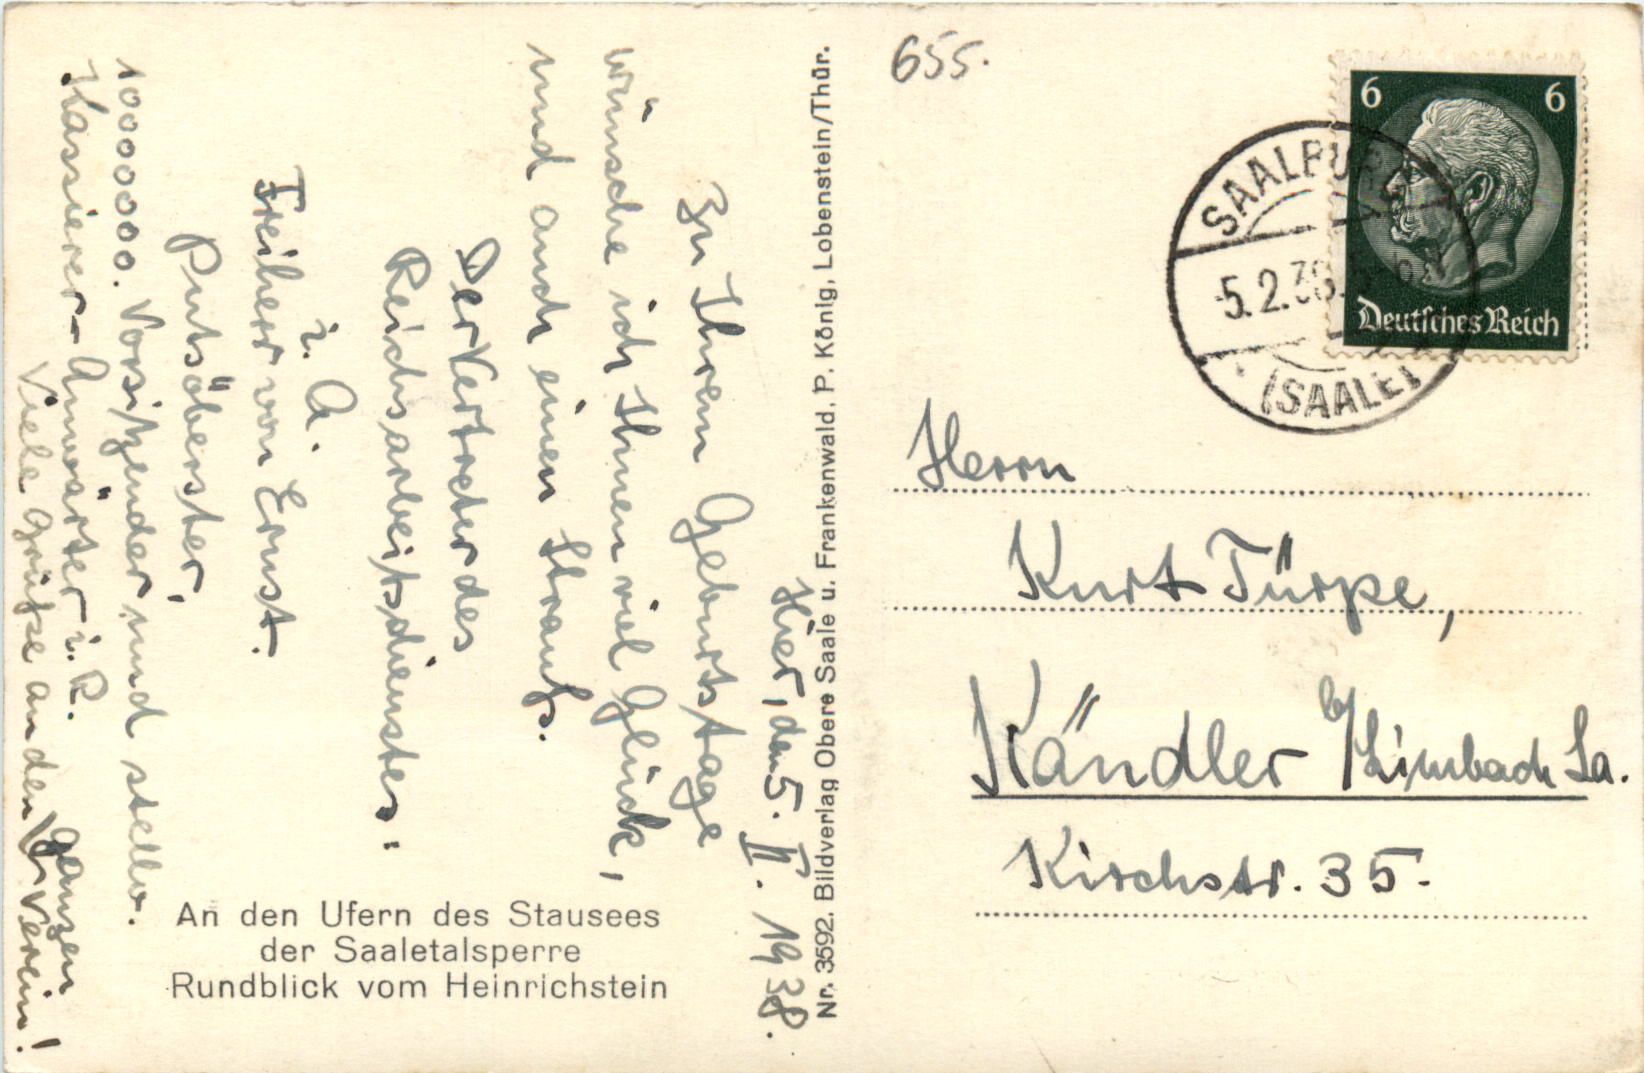 Hier, den 5. II. 1938.
Zu Ihrem Geburtstage
wünsche ich Ihnen viel Glück,
und auch einen Strauß.
Der Vertreter des
Reichsarbeitsdienstes:
i. A.
Freiherr von Ernst.
Putsöberster,
10000000. Vorsitzender und stellv.
Kassierer-Anwärter i. R.
Viele Grüße an den ganzen
Verein!
An den Ufern des Stausees
der Saaletalsperre
Rundblick vom Heinrichstein
Nr. 3592. Bildverlag Obere Saale u. Frankenwald. P. König, Lobenstein/Thür.
655.
6 6
Deutsches Reich
SAALBURG
-5.2.38
(SAALE)
Herrn
Kurt Türpe,
Kändler b/Limbach Sa.
Kirchstr. 35.